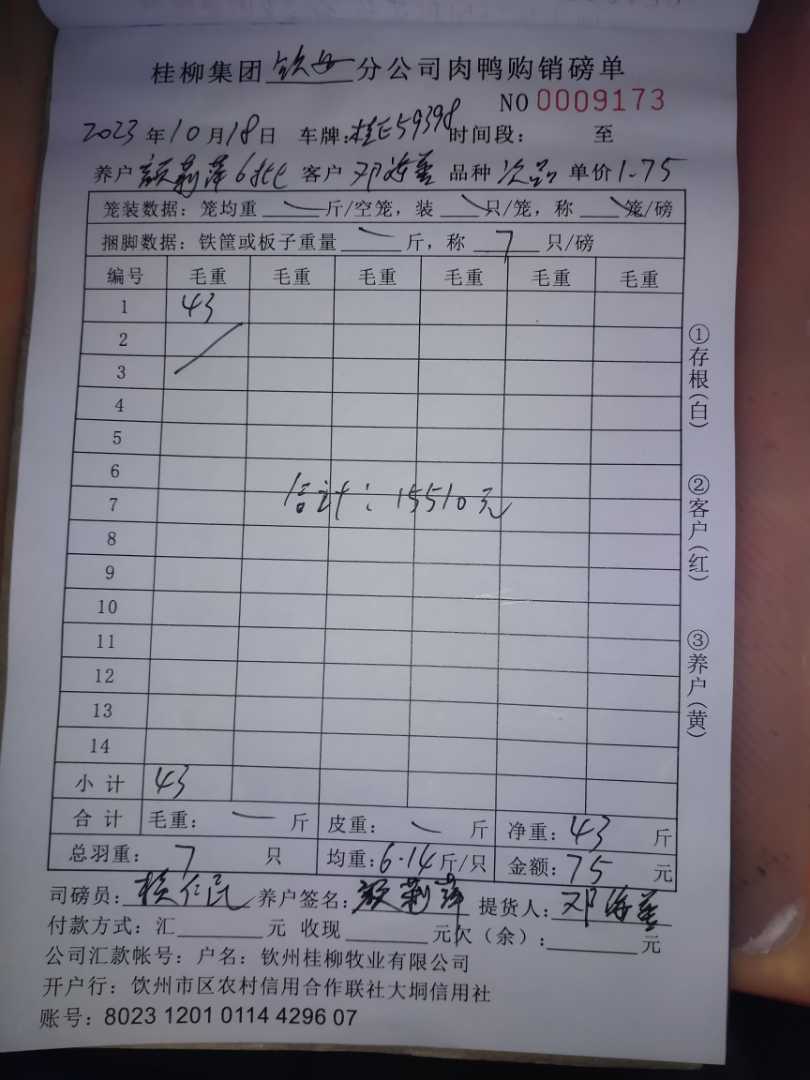 桂柳集团 钦州 分公司肉鸭购销磅单
NO 0009173
2023 年 10 月 18 日 车牌: 桂E59398 时间段: 至
养户 颜莉萍 6批 客户 邓海 品种 次品 单价 1.75
笼装数据: 笼均重 斤/空笼, 装 只/笼, 称 笼/磅
捆脚数据: 铁筐或板子重量 斤, 称 7 只/磅
编号 毛重 毛重 毛重 毛重 毛重 毛重
1 43
2
3
4
5
6
合计: 15510元
7
8
9
10
11
12
13
14
小 计 43
合 计 毛重: 斤 皮重: 斤 净重: 43 斤
总羽重: 7 只 均重: 6.14 斤/只 金额: 75 元
司磅员: 仁民 养户签名: 颜莉萍 提货人: 邓海
付款方式: 汇 元 收现 元欠(余): 元
公司汇款帐号: 户名: 钦州桂柳牧业有限公司
开户行: 饮州市区农村信用合作联社大垌信用社
账号: 8023 1201 0114 4296 07
①存根(白)
②客户(红)
③养户(黄)